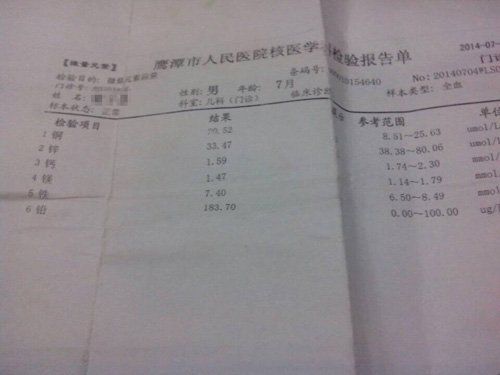 鹰潭市人民医院核医学 检验报告单
【微量元素】
2014-07-
检验目的: 微量元素
条码号: 0010154640
门诊
门诊号
No: 20140704WLSC
姓 名:
性别: 男 年龄: 7月
样本类型: 全血
样本状态: 正常
科室: 儿科(门诊)
临床诊
检验项目 结果 参考范围 单位
1 铜 20.52 8.51~25.63 umol/L
2 锌 33.47 38.38~80.06 umol/
3 钙 1.59 1.74~2.30 mmol/
4 镁 1.47 1.14~1.79 mmol
5 铁 7.40 6.50~8.49 mmol/
6 铅 183.70 0.00~100.00 ug/